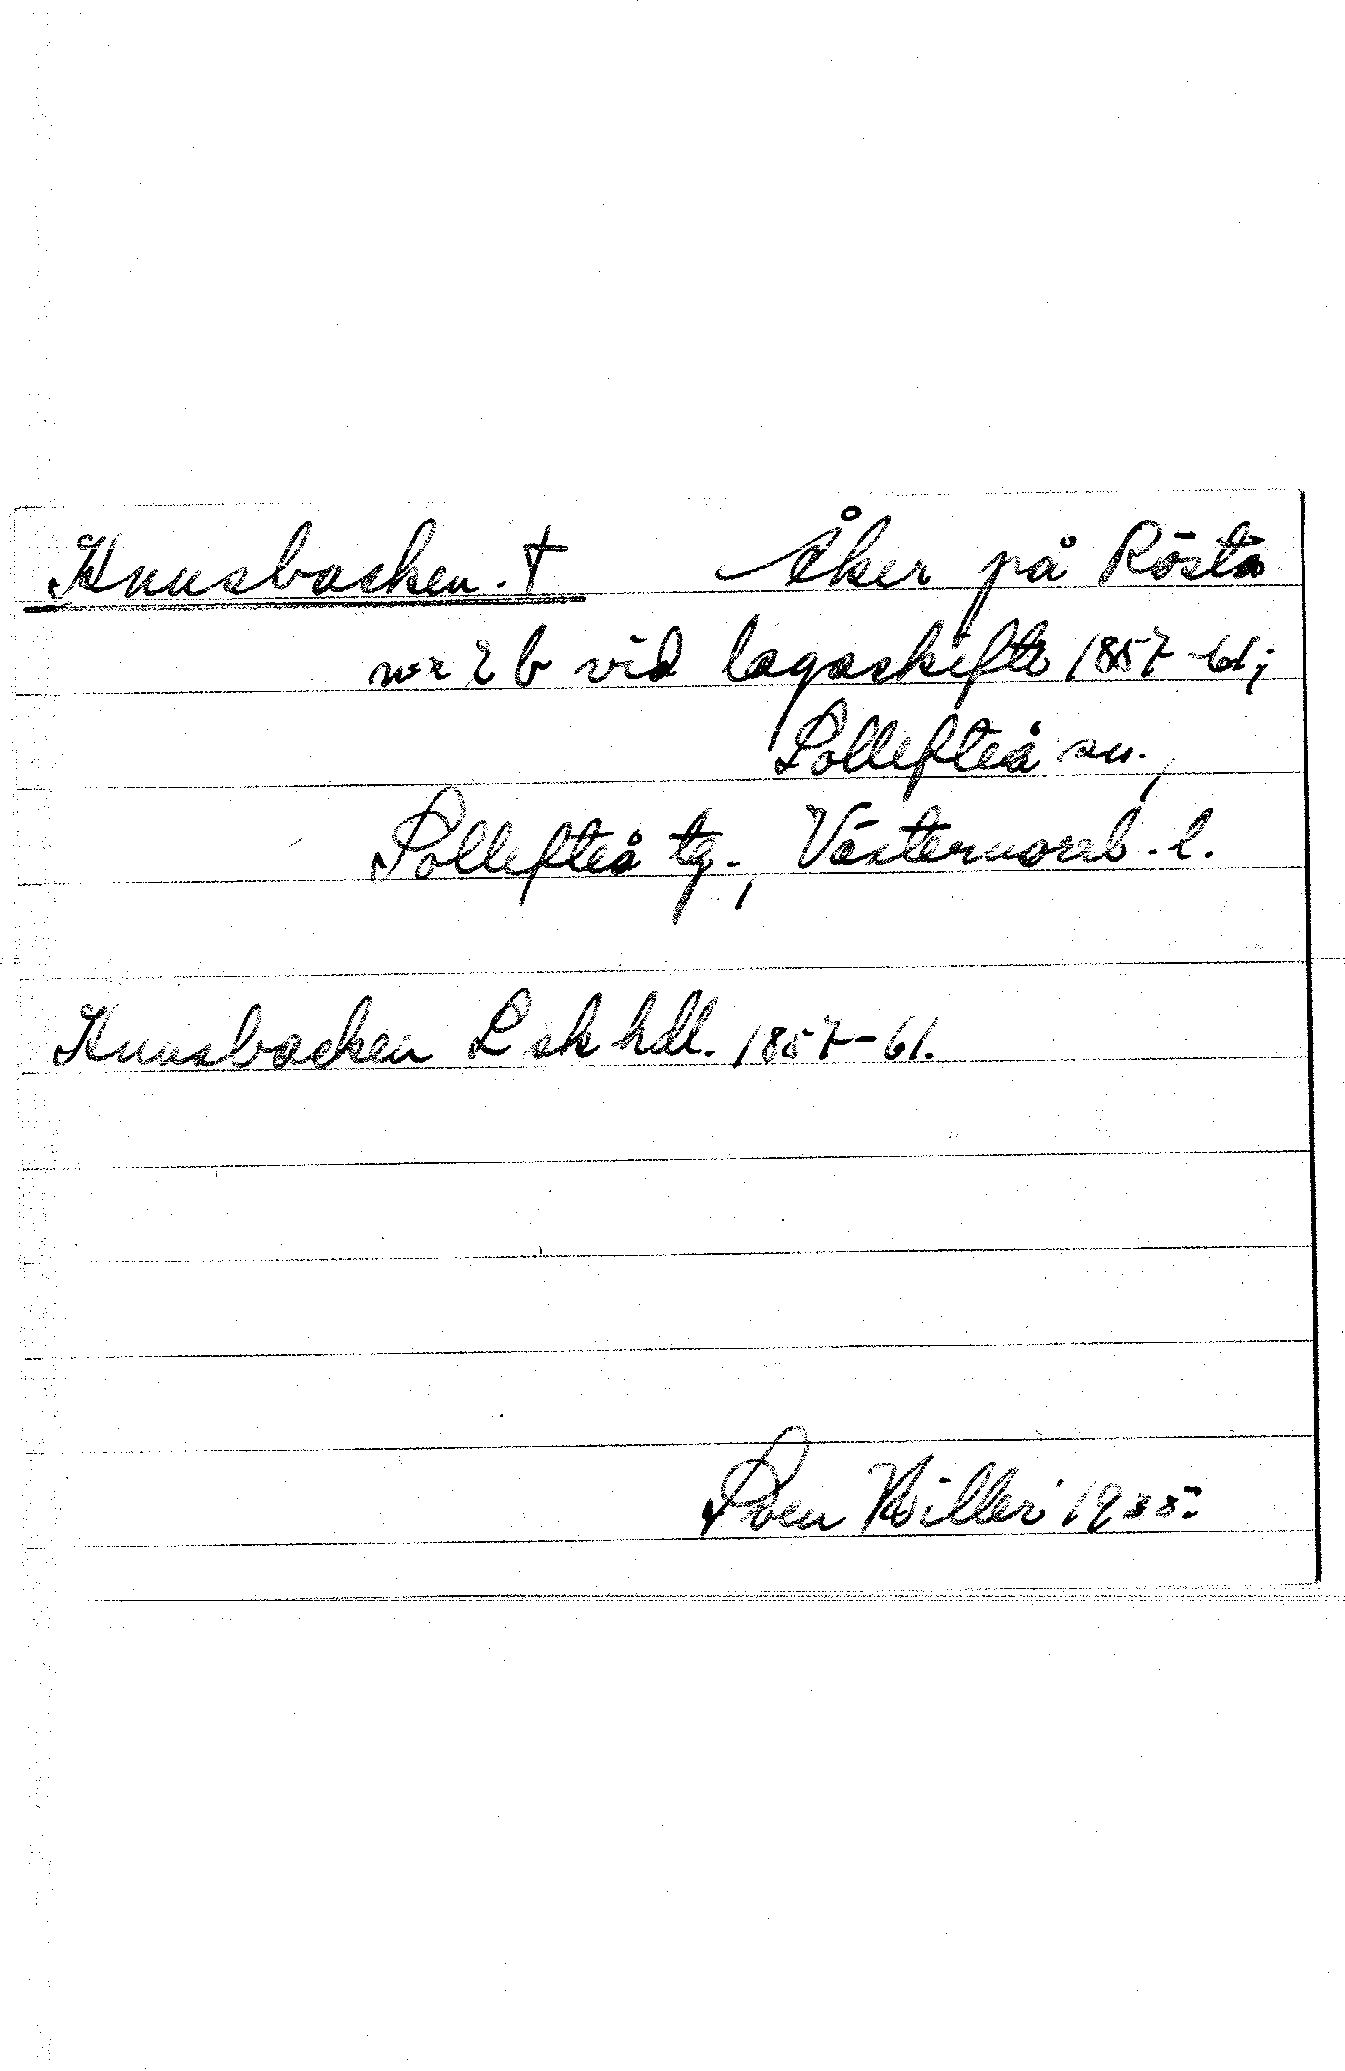 Knusbacken. † Åker på Rösta
nr 2 b vid lagaskifte 1857-61;
Sollefteå sn.,
Sollefteå tg., Västernorrl. l.
Knusbacken L sk hdl. 1857-61.
Sven Willer 1935.